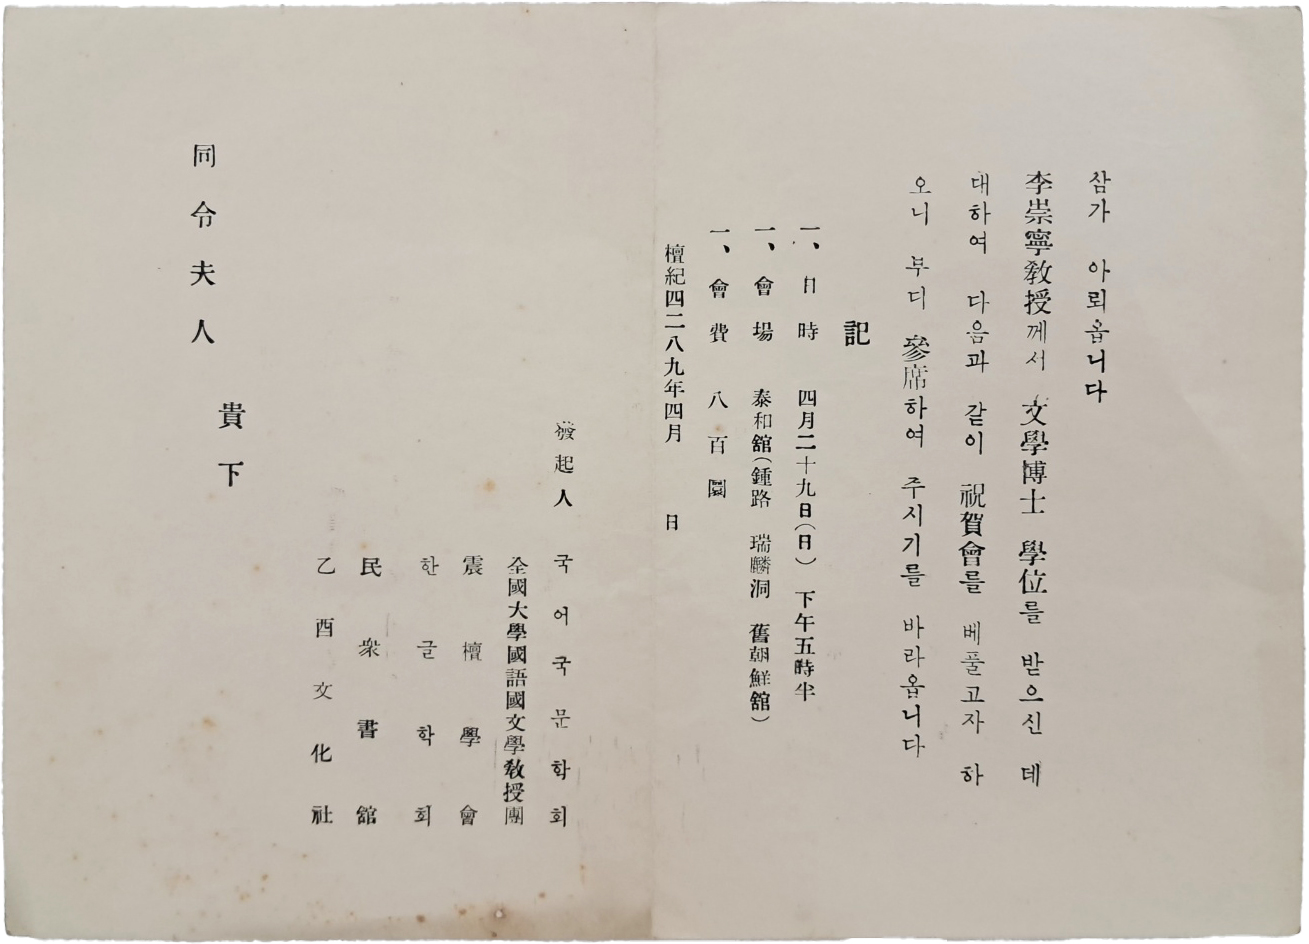 삼가 아뢰옵니다
李崇寧敎授께서 文學博士 學位를 받으신 데
대하여 다음과 같이 祝賀會를 베풀고자 하
오니 부디 參席하여 주시기를 바라옵니다
記
一、日時 四月二十九日(日) 下午五時半
一、會場 泰和舘(鍾路 瑞麟洞 舊朝鮮舘)
一、會費 八百圜
檀紀四二八九年四月 日
發起人 국어국문학회
全國大學國語國文學敎授團
震檀學會
한글학회
民衆書舘
乙酉文化社
貴下
同令夫人